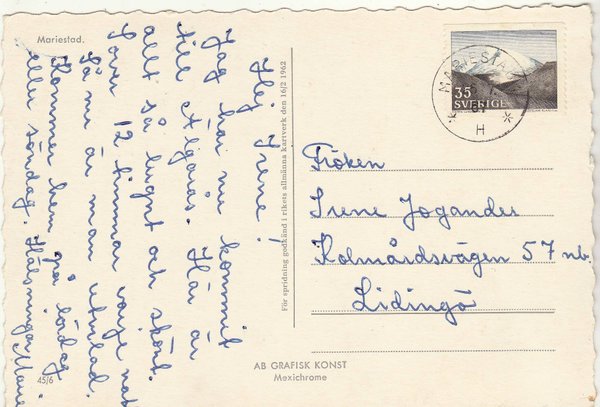 Mariestad.
Hej Irene!
Jag har nu kommit
till Algarås. Här är
allt så lugnt och skönt.
Sover 12 timmar varje natt
så nu är man utvilad.
Kommer hem på lördag
eller söndag. Hälsningar
45/6
För spridning godkänd i rikets allmänna kartverk den 16/2 1962
AB GRAFISK KONST
Mexichrome
MARIESTAD
H
35
SVERIGE
Fröken
Irene Jogander
Kolmårdsvägen 57 nb.
Lidingö